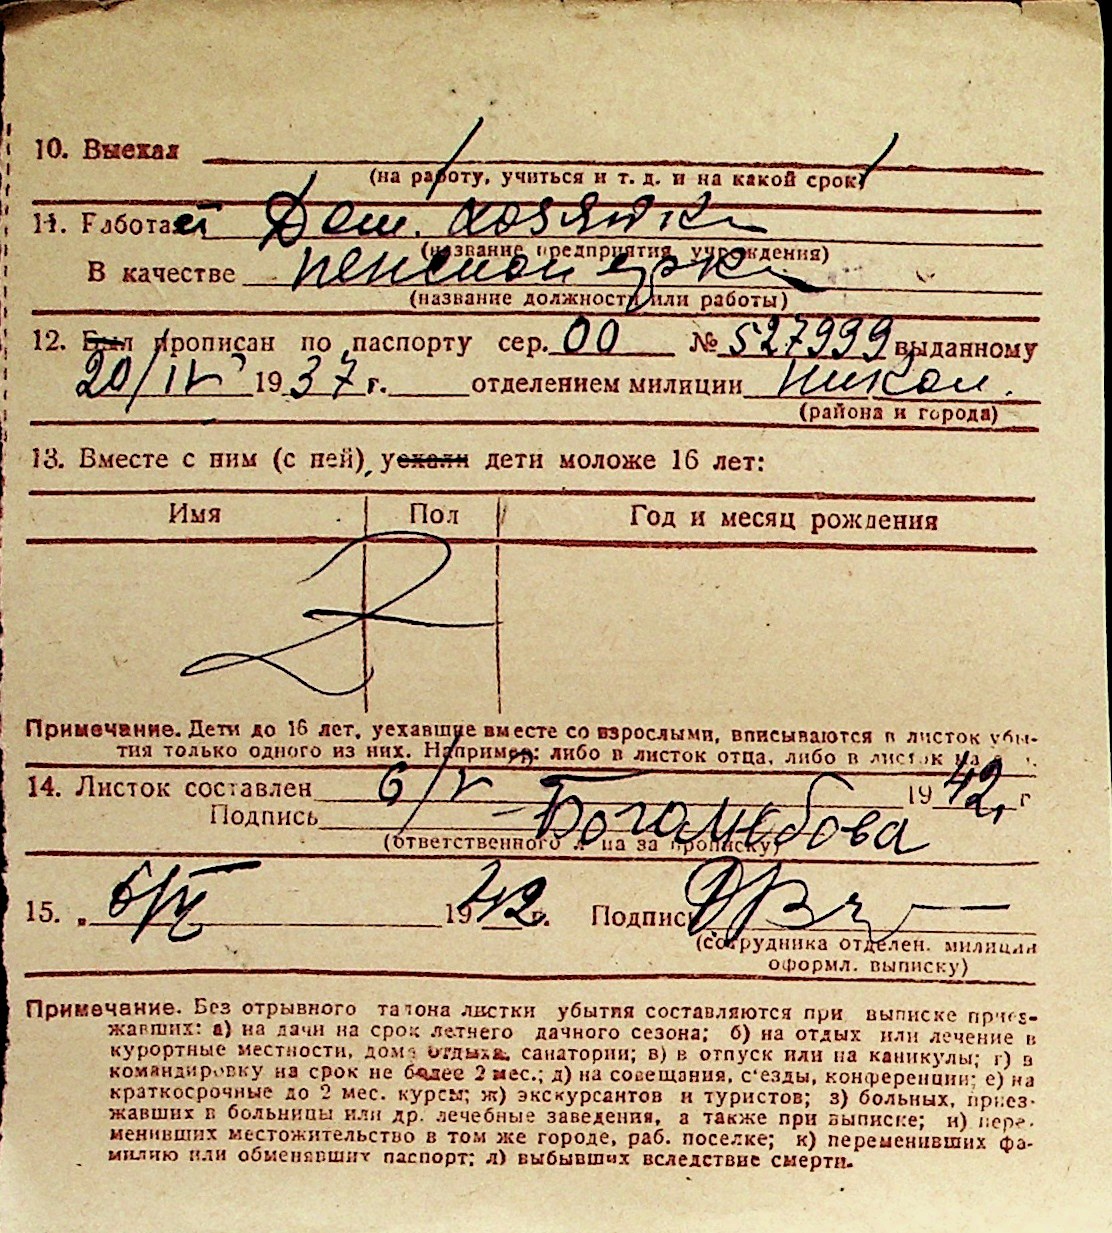 10. Выехал
(на работу, учиться и т. д. и на какой срок)
11. Работает Дом. хозяйка
(название предприятия, учреждения)
В качестве пенсионерка
(название должности или работы)
12. Был прописан по паспорту сер. 00 № 527999 выданному
20/IV 1937 г. отделением милиции Никол.
(района и города)
13. Вместе с ним (с ней) уехали дети моложе 16 лет:
Имя Пол Год и месяц рождения
Примечание. Дети до 16 лет, уехавшие вместе со взрослыми, вписываются в листок убы-
тия только одного из них. Например: либо в листок отца, либо в листок
14. Листок составлен 6/V 1942 г
Подпись Боголюбова
(ответственного лица за прописку)
15. 6/V 1942 г. Подпись
(сотрудника отделен. милиции
оформл. выписку)
Примечание. Без отрывного талона листки убытия составляются при выписке приез-
жавших: а) на дачи на срок летнего дачного сезона; б) на отдых или лечение в
курортные местности, дома отдыха, санатории; в) в отпуск или на каникулы; г) в
командировку на срок не более 2 мес.; д) на совещания, с'езды, конференции; е) на
краткосрочные до 2 мес. курсы; ж) экскурсантов и туристов; з) больных, приез-
жавших в больницы или др. лечебные заведения, а также при выписке; и) пере-
менивших местожительство в том же городе, раб. поселке; к) переменивших фа-
милию или обменявших паспорт; л) выбывших вследствие смерти.